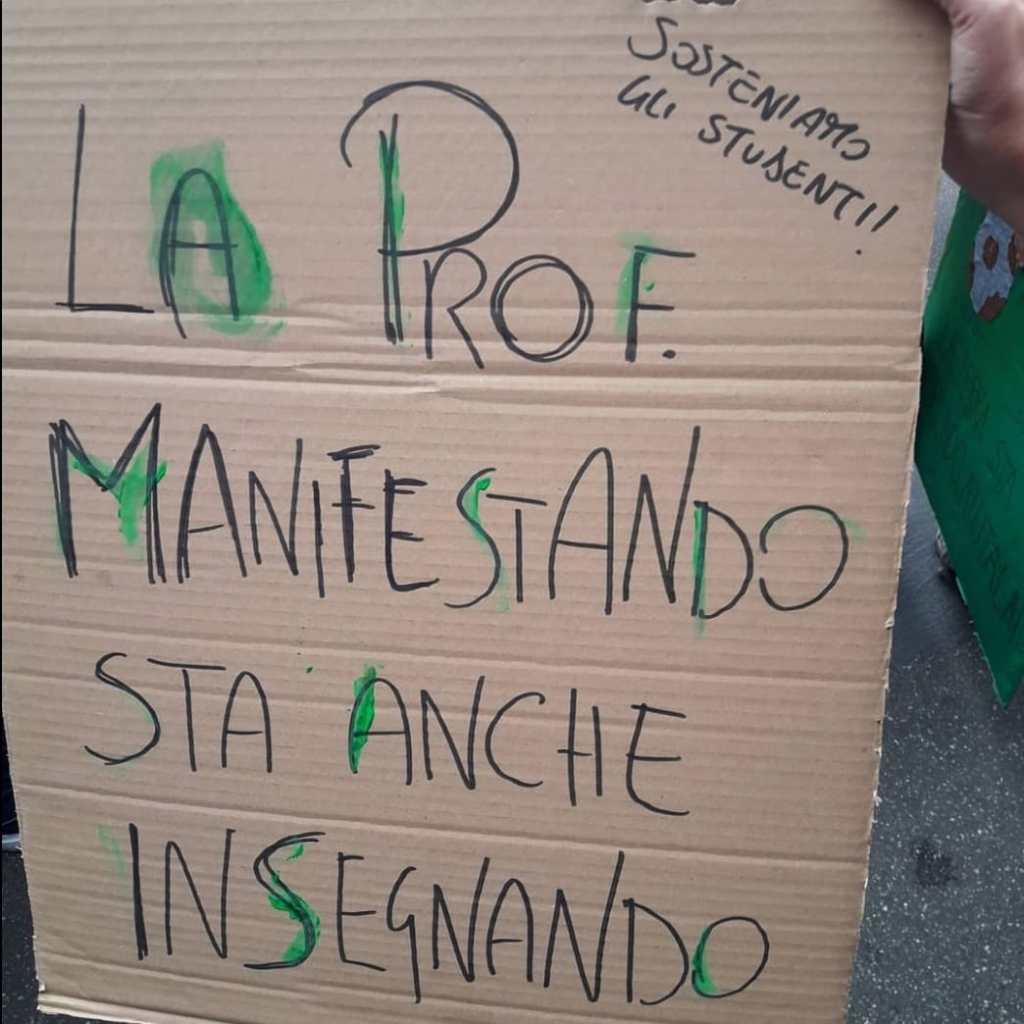 SOSTENIAMO
GLI STUDENTI!!
LA PROF.
MANIFESTANDO
STA ANCHE
INSEGNANDO